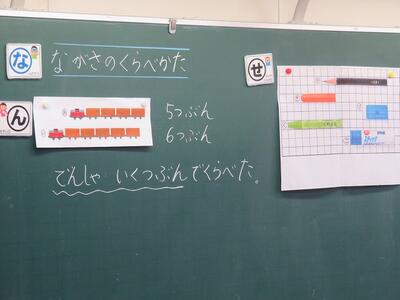 な
ながさのくらべかた
せ
ん
5つぶん
6つぶん
でんしゃ いくつぶんでくらべた。